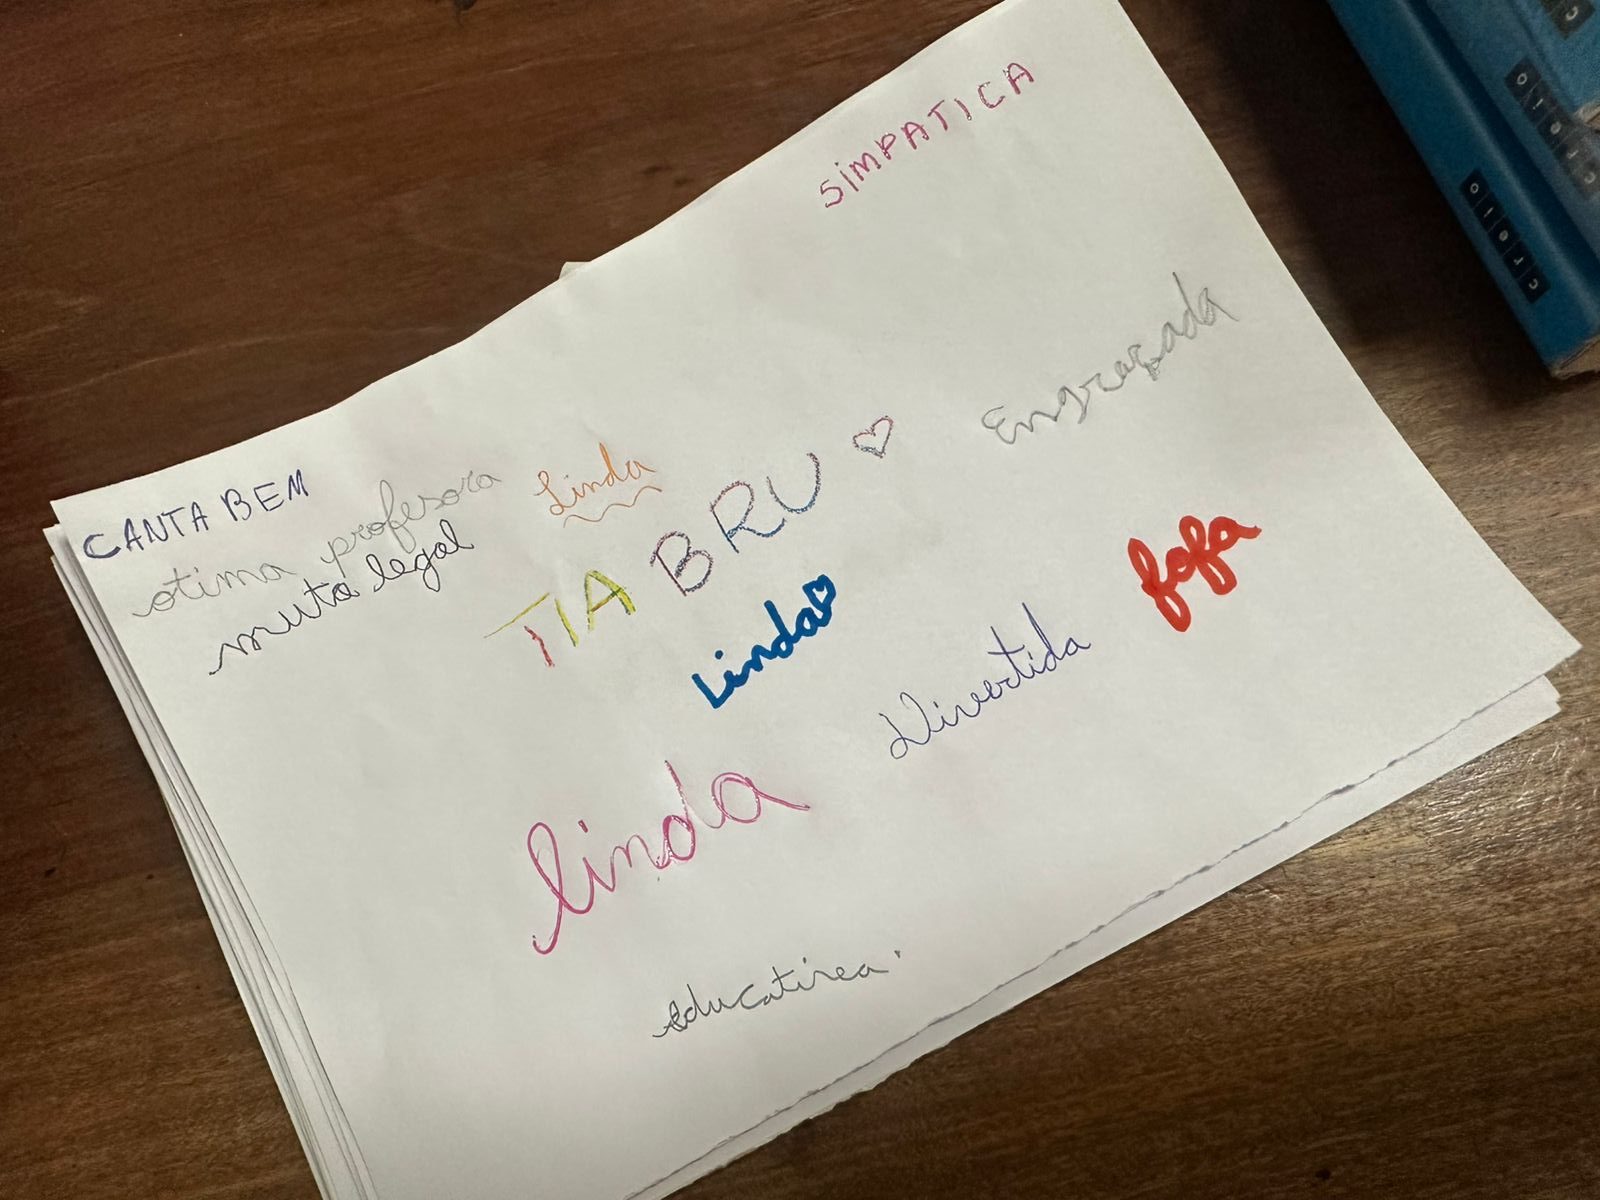 SIMPATICA
Engraçada
CANTA BEM
otima profesora
muto legal
Linda
TIA BRU
Linda
fofa
Divertida
linda
educatirea.
criativo